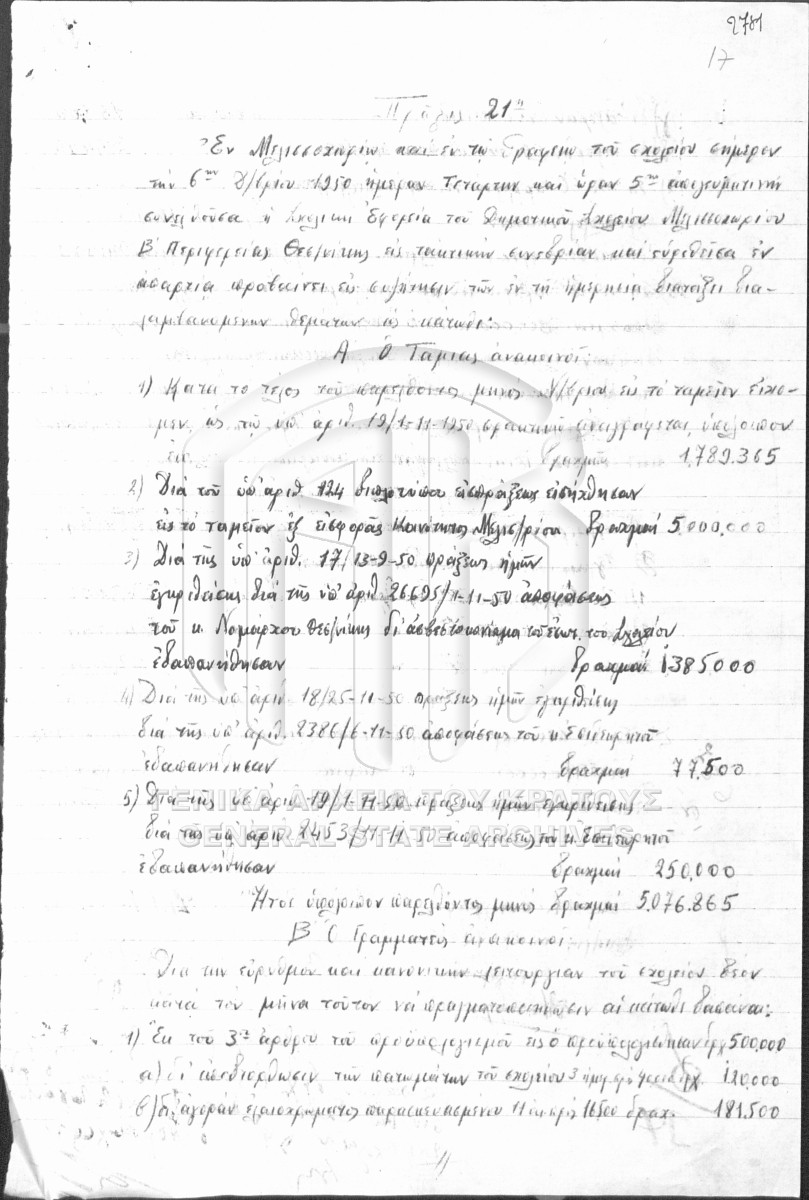 2781
17
Πρᾶξις 21η
Ἐν Μελισσοχωρίῳ καὶ ἐν τῷ Γραφείῳ τοῦ σχολείου σήμερον
τὴν 6ην Δ/βρίου 1950 ἡμέραν Τετάρτην καὶ ὥραν 5ην ἀπογευματινὴν
συνελθοῦσα ἡ Σχολικὴ Ἐφορεία τοῦ Δημοτικοῦ Σχολείου Μελισσοχωρίου
Β' Περιφερείας Θεσ/νίκης εἰς τακτικὴν συνεδρίαν καὶ εὑρεθεῖσα ἐν
ἀπαρτίᾳ προβαίνει εἰς συζήτησιν τῶν ἐν τῇ ἡμερησίᾳ διατάξει δια-
λαμβανομένων θεμάτων ὡς κάτωθι:
Α Ὁ Ταμίας ἀνακοινοῖ:
1) Κατὰ τὸ τέλος τοῦ παρελθόντος μηνὸς εἰς τὸ ταμεῖον εἴχο-
μεν, ὡς τῷ ὑπ' ἀριθ. 19/1-11-1950 πρακτικῷ ἀναγράφεται, ὑπόλοιπον
ἐκ Δραχμῶν 1.789.365
2) Διὰ τοῦ ὑπ' ἀριθ 124 διπλοτύπου εἰσπράξεως εἰσήχθησαν
εἰς τὸ ταμεῖον ἐξ εἰσφορᾶς Κοινότητος Μελισ/ρίου δραχμαί 5.000,000
3) Διὰ τῆς ὑπ' ἀριθ. 17/13-9-50 πράξεως ἡμῶν
ἐγκριθείσης διὰ τῆς ὑπ' ἀριθ 26695/1-11-50 ἀποφάσεως
τοῦ κ. Νομάρχου Θεσ/νίκης δι' ἀσβεστοκονίαμα τοῦ ἐσωτ. του Σχολείου
ἐδαπανήθησαν δραχμαί 1385000
4) Διὰ τῆς ὑπ' ἀριθ. 18/25-11-50 πράξεως ἡμῶν ἐγκριθείσης
διὰ τῆς ὑπ' ἀριθ. 2386/6-11-50 ἀποφάσεως τοῦ κ. Ἐπιθεωρητοῦ
ἐδαπανήθησαν δραχμαί 77.500
ΓΕΝΙΚΑ ΑΡΧΕΙΑ ΤΟΥ ΚΡΑΤΟΥΣ
5) Διὰ τῆς ὑπ' ἀριθ 19/1-11-50 πράξεως ἡμῶν ἐγκριθείσης
GENERAL STATE ARCHIVES
διὰ τῆς ὑπ' ἀριθ 2453/11-11-50 ἀποφάσεως τοῦ κ. Ἐπιθεωρητοῦ
ἐδαπανήθησαν δραχμαί 250,000
Ἤτοι ὑπόλοιπον παρελθόντος μηνὸς δραχμαί 5.076.865
Β Ὁ Γραμματεὺς ἀνακοινοῖ
Διὰ τὴν εὔρυθμον καὶ κανονικὴν λειτουργίαν τοῦ σχολείου δέον
κατὰ τὸν μῆνα τοῦτον νὰ πραγματοποιηθῶσιν αἱ κάτωθι δαπάναι:
1) Ἐκ τοῦ 3ου ἄρθρου τοῦ προϋπολογισμοῦ εἰς ὃ προϋπελογίσθησαν δρχ 500,000
α) δι' ἐπιδιόρθωσιν τῶν πατωμάτων τοῦ σχολείου 3 δρχ. 120,000
β) δι' ἀγορὰν ἐλαιοχρώματος παρασκευασμένου 11 ὀκ. πρὸς 16500 δραχ. 181.500